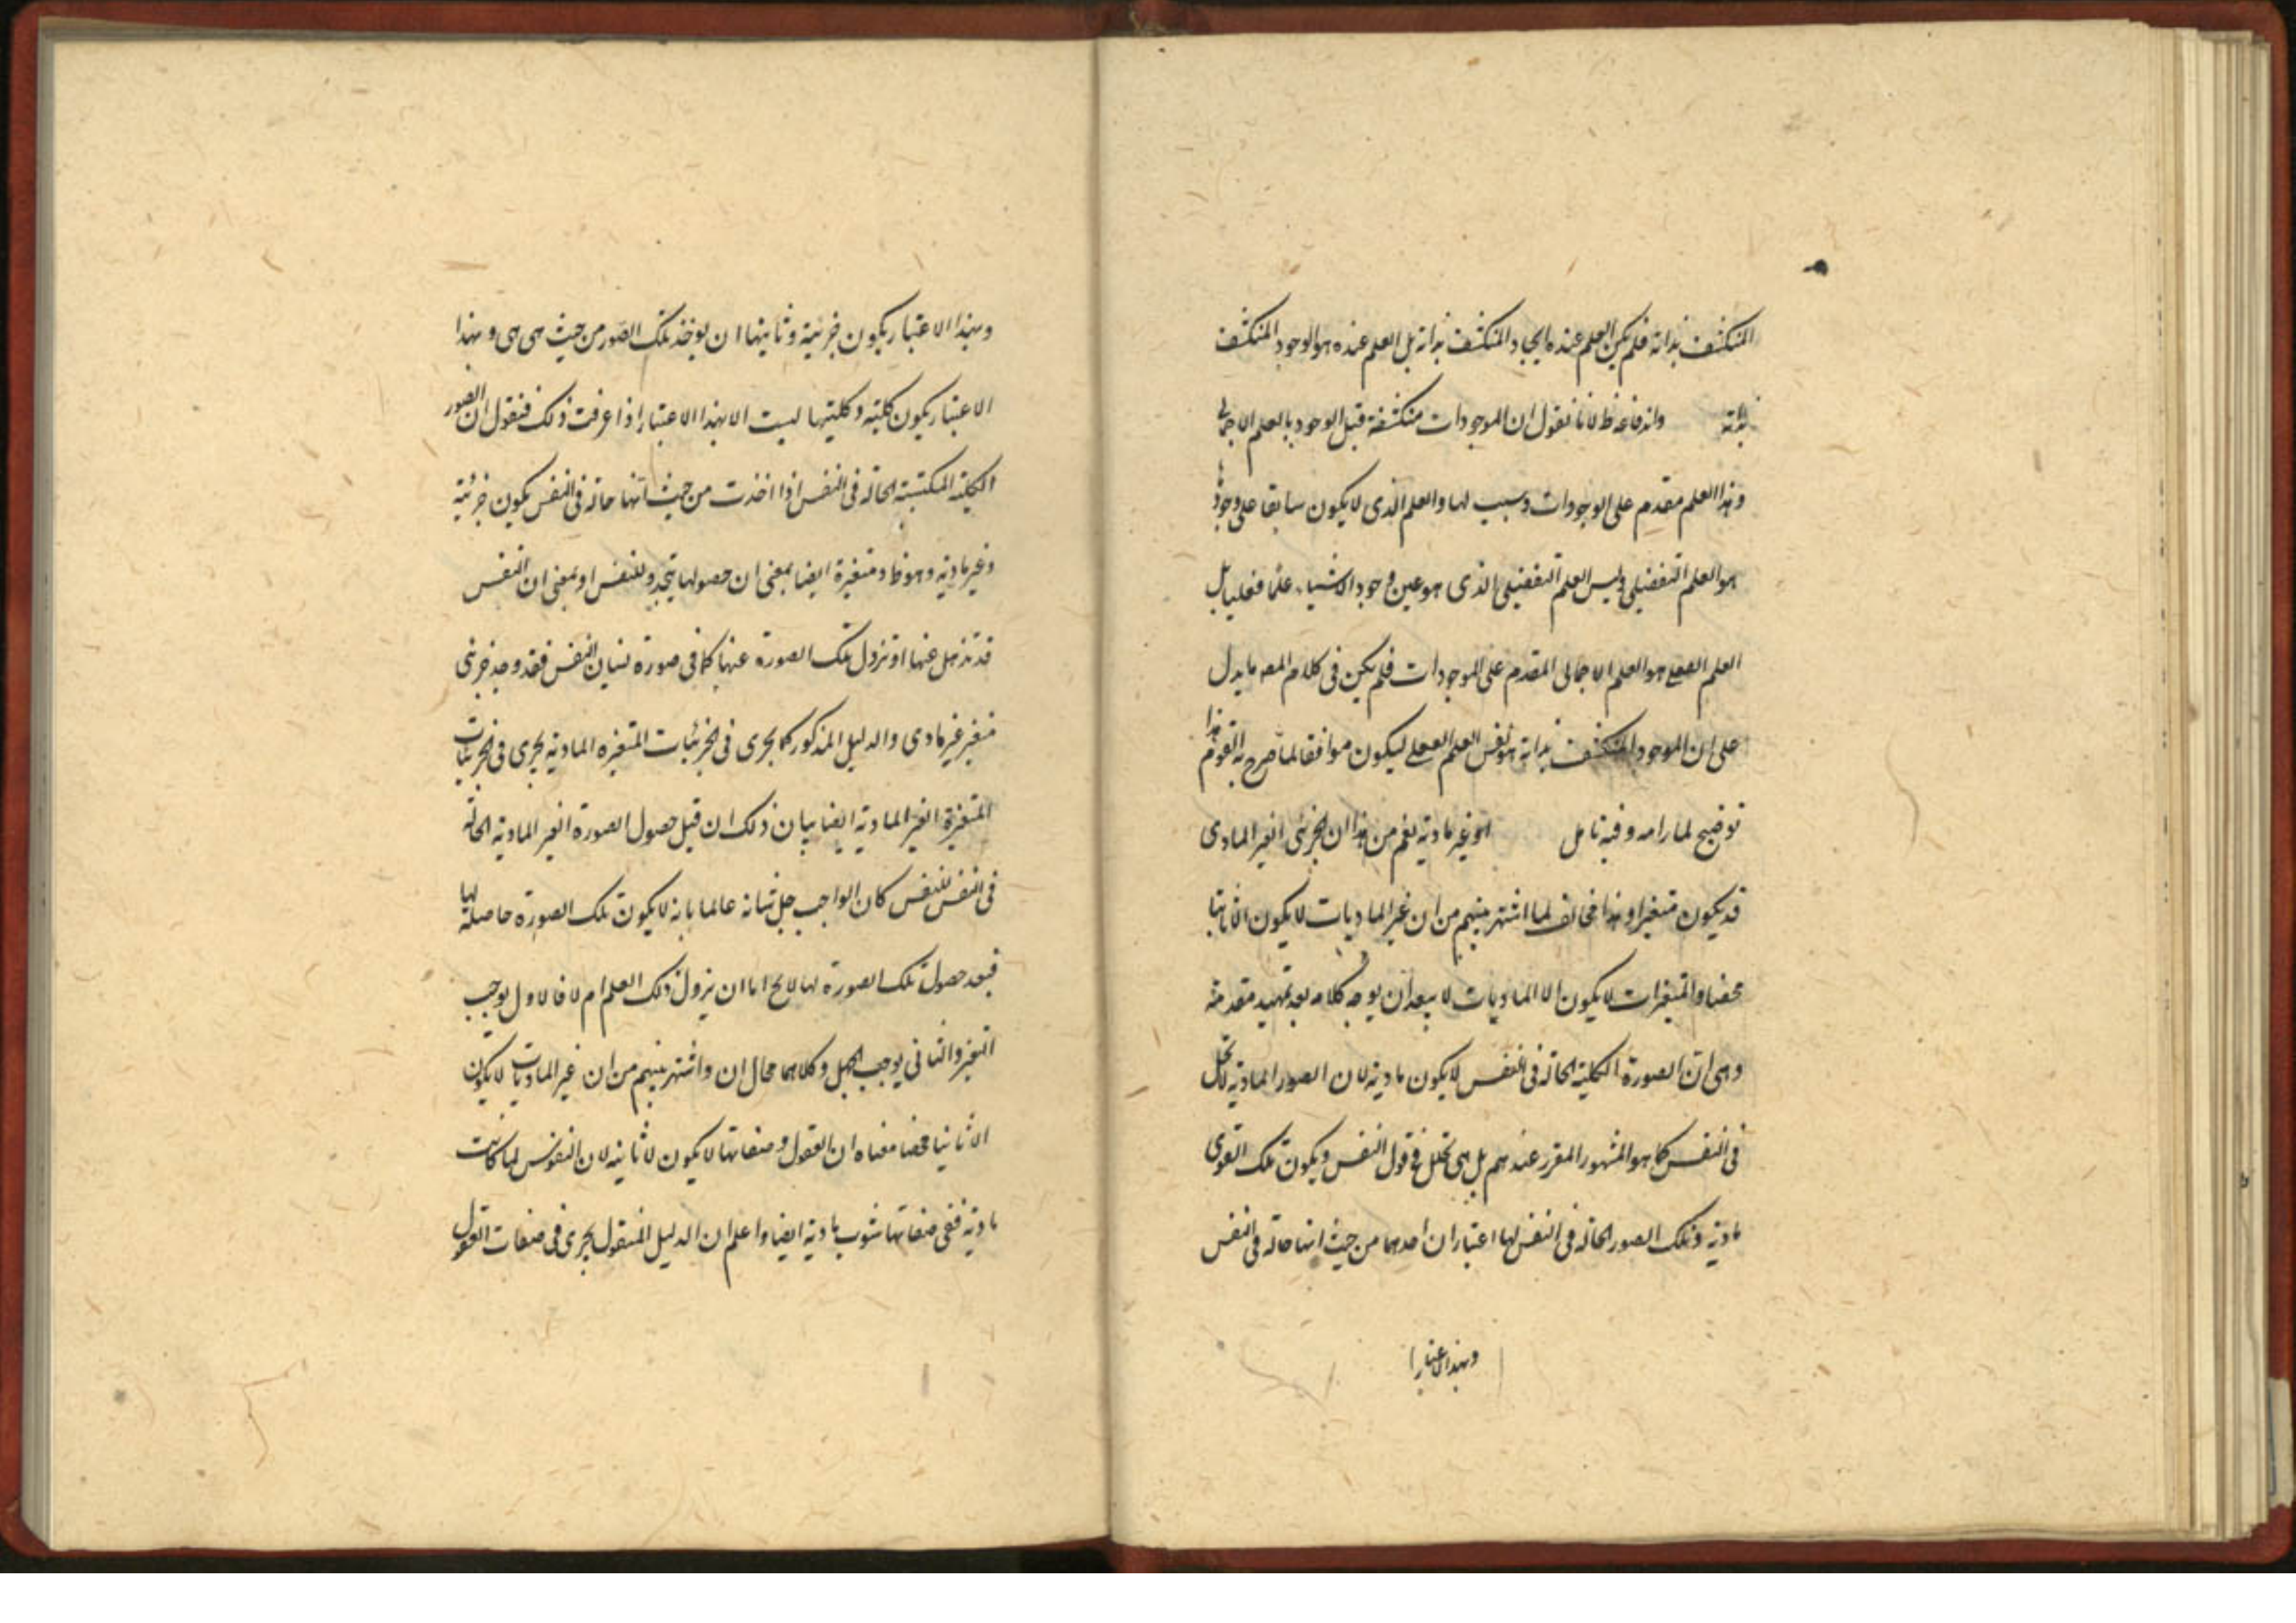 المنكشف بذاته فلم يكن العلم عنده ايجاد المنكشف بذاته بل العلم عنده هو الوجود المنكشف
بذاته واندفاعه ظ لانا نقول ان الموجودات منكشفة قبل الوجود بالعلم الاجمالى
وهذا العلم مقدم على الوجودات وسبب لها والعلم الذى لا يكون سابقا على وجودها
هو العلم التفصيلى وليس العلم التفصيلى الذى هو عين وجود الاشياء علما فعليا بل
العلم الفعلى هو العلم الاجمالى المقدم على الموجودات فلم يكن فى كلام المصه ما يدل
على ان الموجود المنكشف بذاته هو نفس العلم الفعلى ليكون موافقا لما صرح به القوم هذا
توضيح لمارامه وفيه تامل او غير مادية يفهم من هذا ان الجزئى الغير المادى
قد يكون متغيرا وهذا مخالف لما اشتهر بينهم من ان غير الماديات لا يكون الا ثابتا
محضا والمتغيرات لا يكون الا الماديات لا يبعد ان يوجه كلامه بعد تمهيد مقدمة
وهى ان الصورة الكلية الحالة فى النفس لا يكون مادية لان الصور المادية لا تحل
فى النفس كما هو المشهور المقرر عندهم بل هى تحل فى قوى النفس ويكون تلك القوى
مادية وتلك الصور الحالة فى النفس لها اعتباران احدهما من حيث انها حالة فى النفس
وبهذا الاعتبار
وبهذا الاعتبار يكون جزئية وثانيها ان يوخذ تلك الصور من حيث هى هى وبهذا
الاعتبار يكون كلية وكليتها ليست الا بهذا الاعتبار اذا عرفت ذلك فنقول ان الصور
الكلية المكتسبة الحالة فى النفس اذا اخذت من حيث انها حالة فى النفس يكون جزئية
وغير مادية وهو ظ ومتغيرة ايضا بمعنى ان حصولها يتجدد للنفس او بمعنى ان النفس
قد تذهل عنها او تزول تلك الصورة عنها كما فى صورة نسيان النفس فقد وجد جزئى
متغير غير مادى والدليل المذكور كما يجرى فى الجزئيات المتغيره المادية يجرى فى الجزئيات
المتغيرة الغير المادية ايضا بيان ذلك ان قبل حصول الصورة الغير المادية الحالة
فى النفس للنفس كان الواجب جل شانه عالما بانه لا يكون تلك الصورة حاصلة لها
فبعد حصول تلك الصورة لها لا يخ اما ان يزول ذلك العلم ام لا فالاول يوجب
التغير والثانى يوجب الجهل وكلاهما محال ان واشتهر بينهم من ان غير الماديات لا يكون
الا ثابتا محضا معناه ان العقول وصفاتها لا يكون الا ثابته لان النفوس لما كانت
مادية ففى صفاتها شوب مادية ايضا واعلم ان الدليل المنقول يجرى فى صفات العقول